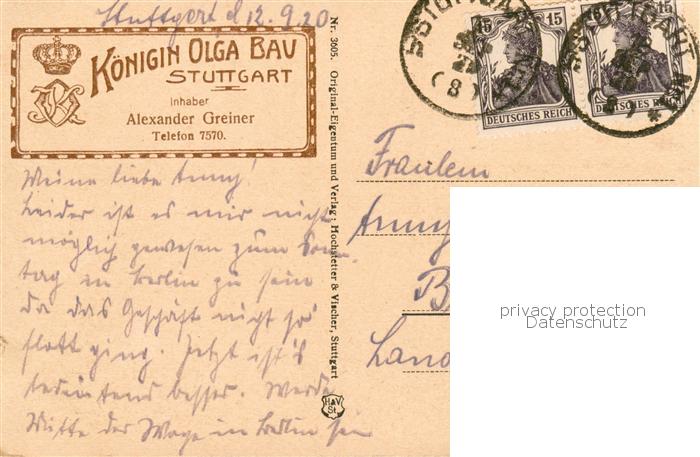 Stuttgart d 12.9.20
KÖNIGIN OLGA BAU
STUTTGART
Inhaber
Alexander Greiner
Telefon 7570.
Meine liebe Anny!
Leider ist es mir nicht
möglich gewesen zum Sonn-
tag in Berlin zu sein
da das Geschäft nicht so
flott ging. Jetzt ist's
bedeutend besser. Werde
Mitte der Woge in Berlin sein
Nr. 3905. Original-Eigentum und Verlag: Hochstetter & Vischer, Stuttgart
H&V
St
15 15
DEUTSCHES REICH
15
DEUTSCHES REICH
STUTTGART
(8)
STUTTGART
Fräulein
Anny
B
Land
privacy protection
Datenschutz